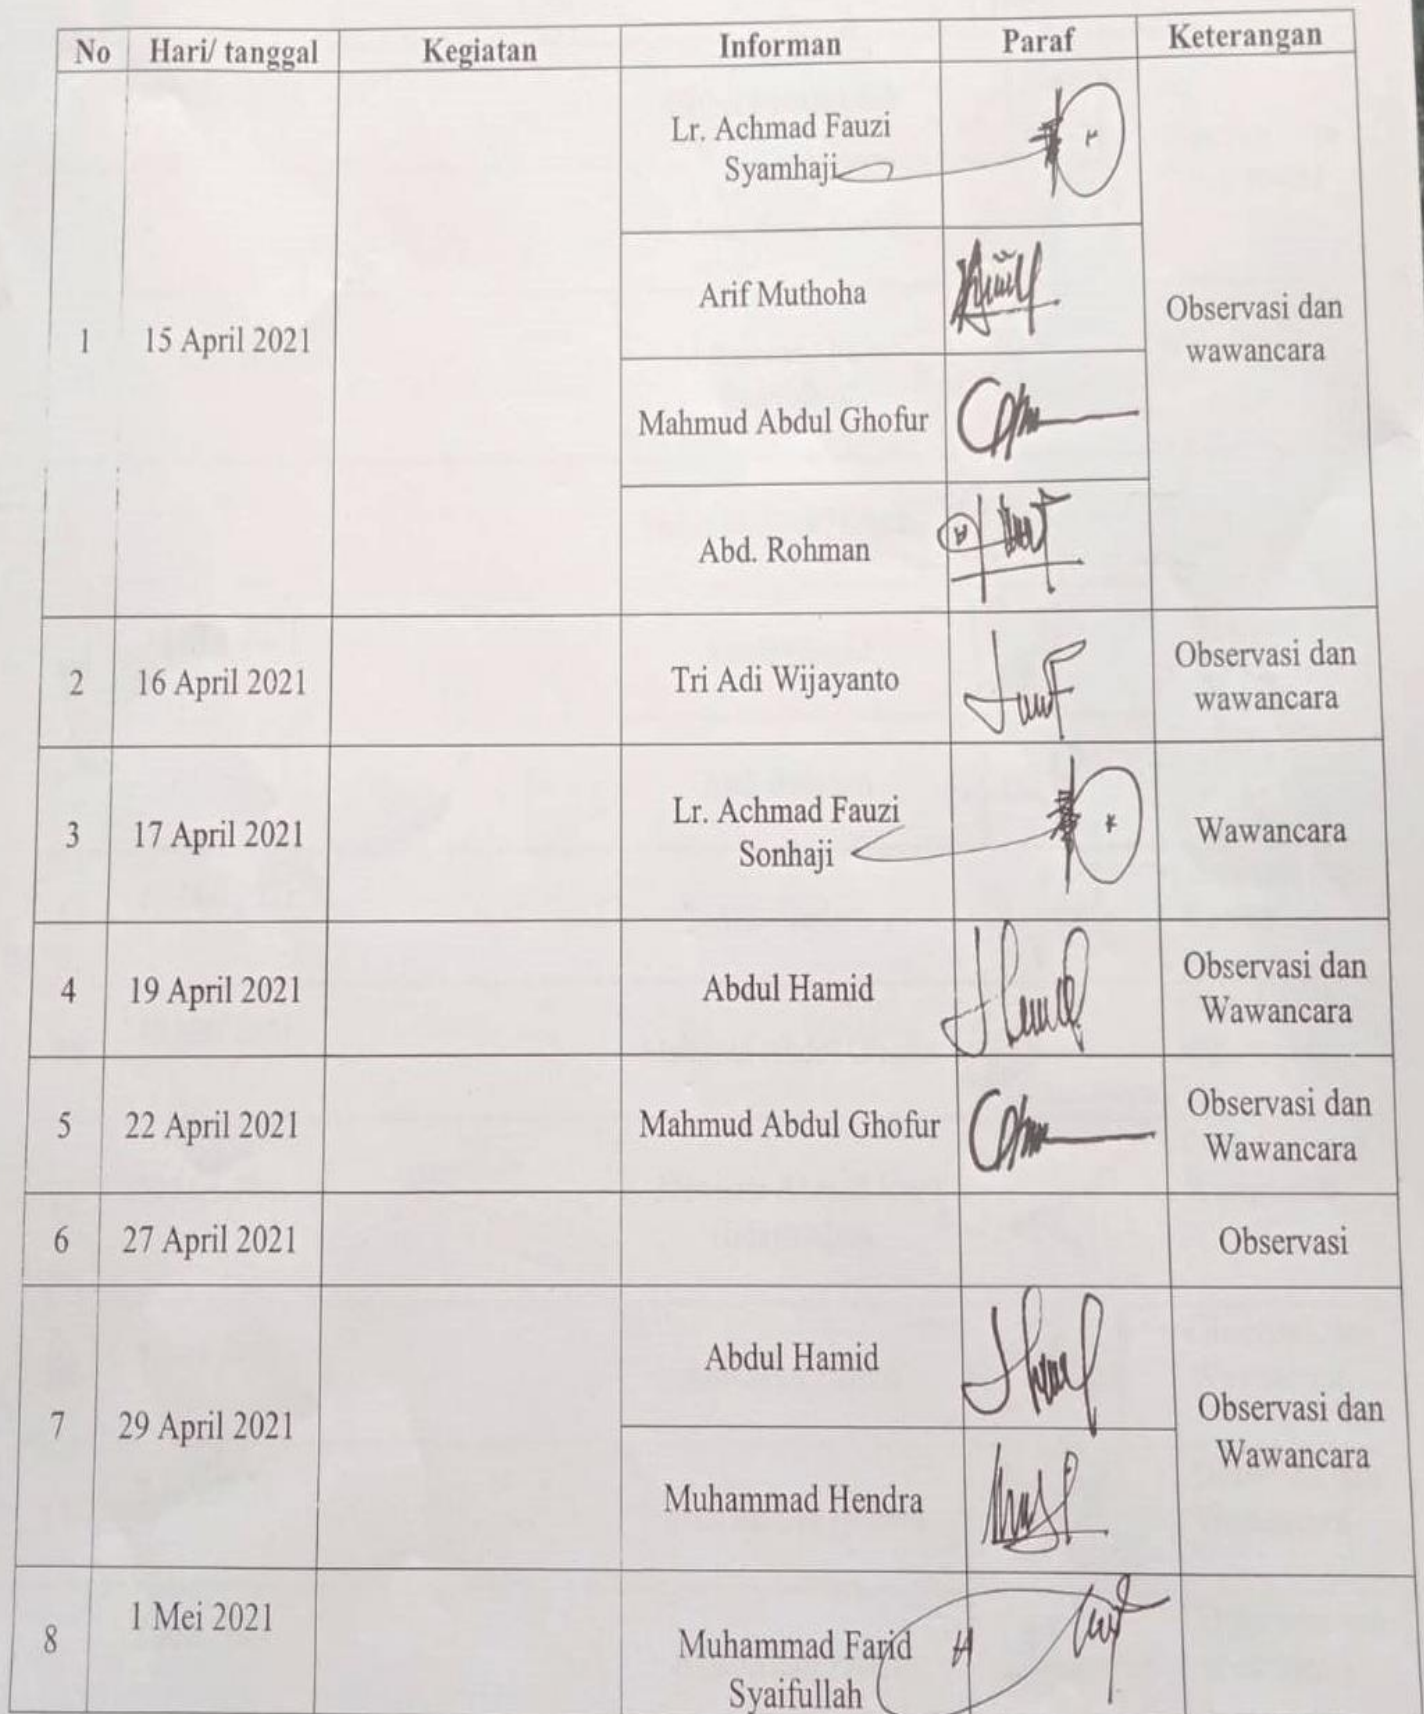 No Hari/ tanggal Kegiatan Informan Paraf Keterangan
Lr. Achmad Fauzi
Syamhaji
Arif Muthoha
1 15 April 2021 Observasi dan
wawancara
Mahmud Abdul Ghofur
Abd. Rohman
2 16 April 2021 Tri Adi Wijayanto Observasi dan
wawancara
3 17 April 2021 Lr. Achmad Fauzi
Sonhaji Wawancara
4 19 April 2021 Abdul Hamid Observasi dan
Wawancara
5 22 April 2021 Mahmud Abdul Ghofur Observasi dan
Wawancara
6 27 April 2021 Observasi
Abdul Hamid
7 29 April 2021 Observasi dan
Wawancara
Muhammad Hendra
8 1 Mei 2021 Muhammad Farid
Syaifullah